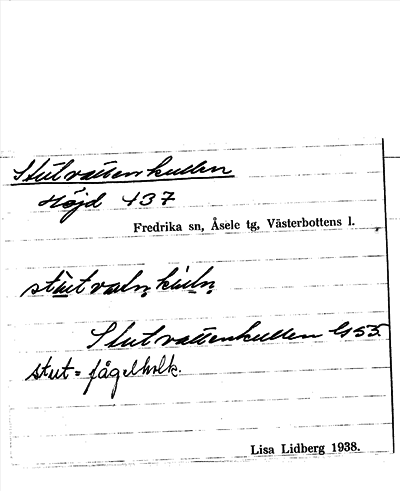 Stutvattenkullen
Höjd 437
Fredrika sn, Åsele tg, Västerbottens l.
Stutvattenkullen G 55
stut = fågelholk.
Lisa Lidberg 1938.